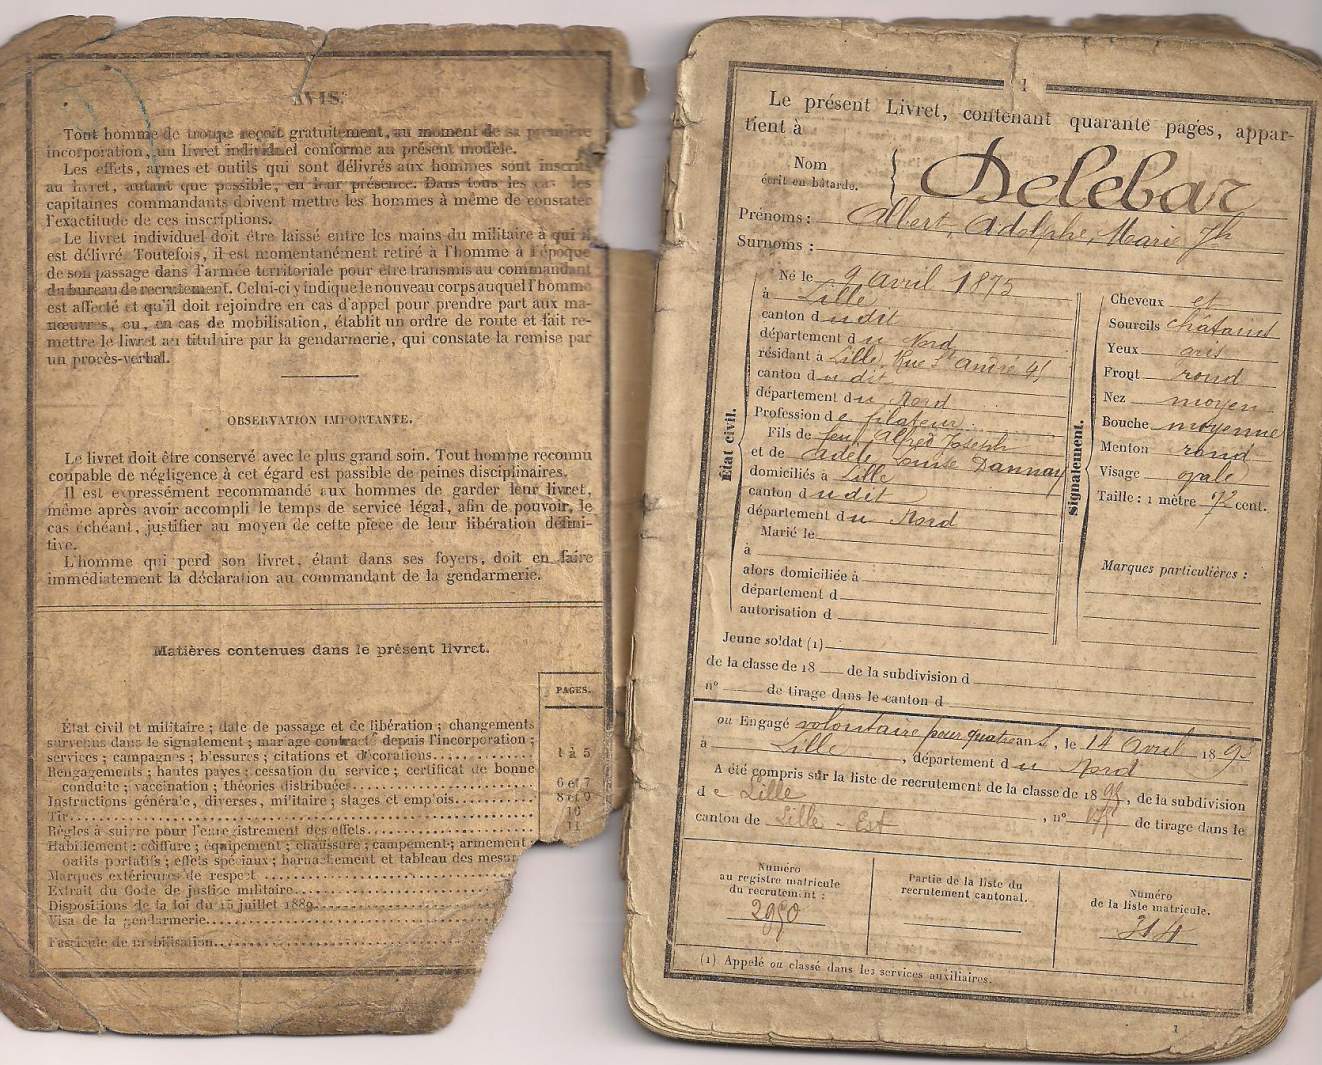 AVIS.
Tout homme de troupe reçoit gratuitement, au moment de sa première
incorporation, un livret individuel conforme au présent modèle.
Les effets, armes et outils qui sont délivrés aux hommes sont inscrits
au livret, autant que possible, en leur présence. Dans tous les cas les
capitaines commandants doivent mettre les hommes à même de constater
l'exactitude de ces inscriptions.
Le livret individuel doit être laissé entre les mains du militaire à qui il
est délivré. Toutefois, il est momentanément retiré à l'homme à l'époque
de son passage dans l'armée territoriale pour être transmis au commandant
du bureau de recrutement. Celui-ci y indique le nouveau corps auquel l'homme
est affecté et qu'il doit rejoindre en cas d'appel pour prendre part aux ma-
nœuvres, ou, en cas de mobilisation, établit un ordre de route et fait re-
mettre le livret au titulaire par la gendarmerie, qui constate la remise par
un procès-verbal.
OBSERVATION IMPORTANTE.
Le livret doit être conservé avec le plus grand soin. Tout homme reconnu
coupable de négligence à cet égard est passible de peines disciplinaires.
Il est expressément recommandé aux hommes de garder leur livret,
même après avoir accompli le temps de service légal, afin de pouvoir, le
cas échéant, justifier au moyen de cette pièce de leur libération défini-
tive.
L'homme qui perd son livret, étant dans ses foyers, doit en faire
immédiatement la déclaration au commandant de la gendarmerie.
Matières contenues dans le présent livret.
PAGES.
État civil et militaire ; date de passage et de libération ; changements
survenus dans le signalement ; mariage contracté depuis l'incorporation ;
services ; campagnes ; blessures ; citations et décorations 1 à 5
Rengagements ; hautes payes ; cessation du service ; certificat de bonne
conduite ; vaccination ; théories distribuées 6 et 7
Instructions générale, diverses, militaire ; stages et emplois 8 et 9
Tir 10
Règles à suivre pour l'enregistrement des effets 11
Habillement : coiffure ; équipement ; chaussure ; campement ; armement ;
outils portatifs ; effets spéciaux ; harnachement et tableau des mesu
Marques extérieures de respect
Extrait du Code de justice militaire
Dispositions de la loi du 15 juillet 1889
Visa de la gendarmerie
Fascicule de mobilisation
1
Le présent Livret, contenant quarante pages, appar-
tient à
Nom
écrit en bâtarde.
Delebar
Prénoms : Albert, Adolphe, Marie Jh
Surnoms :
État civil.
Né le 9 avril 1875
à Lille
canton du dit
département du Nord
résidant à Lille, Rue St André 41
canton du dit
département du Nord
Profession de filateur
Fils de feu Alfred Joseph
et de Adèle Louise Dannay
domiciliés à Lille
canton du dit
département du Nord
Marié le
à
alors domiciliée à
département d
autorisation d
signalement.
Cheveux et
Sourcils châtains
Yeux gris
Front rond
Nez moyen
Bouche moyenne
Menton rond
Visage ovale
Taille : 1 mètre 72 cent.
Marques particulières :
Jeune soldat (1)
de la classe de 18 de la subdivision d
n° de tirage dans le canton d
ou Engagé volontaire pour quatre ans, le 14 avril 1893
à Lille, département du Nord
A été compris sur la liste de recrutement de la classe de 1895, de la subdivision
de Lille, n° de tirage dans le
canton de Lille - Est
Numéro
au registre matricule
du recrutement :
2950
Partie de la liste du
recrutement cantonal.
Numéro
de la liste matricule.
314
(1) Appelé ou classé dans les services auxiliaires.
1